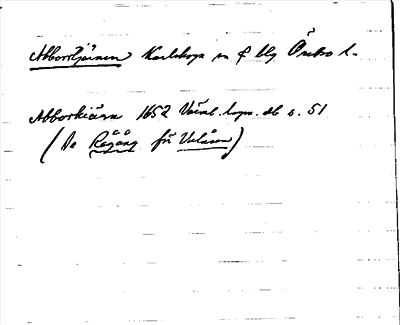 Abborrtjärnen Karlskoga sn o bg Örebro l.
Abborkiärn 1652 Värml. lagm. db s. 51
(Se Rågång för Valåsen)